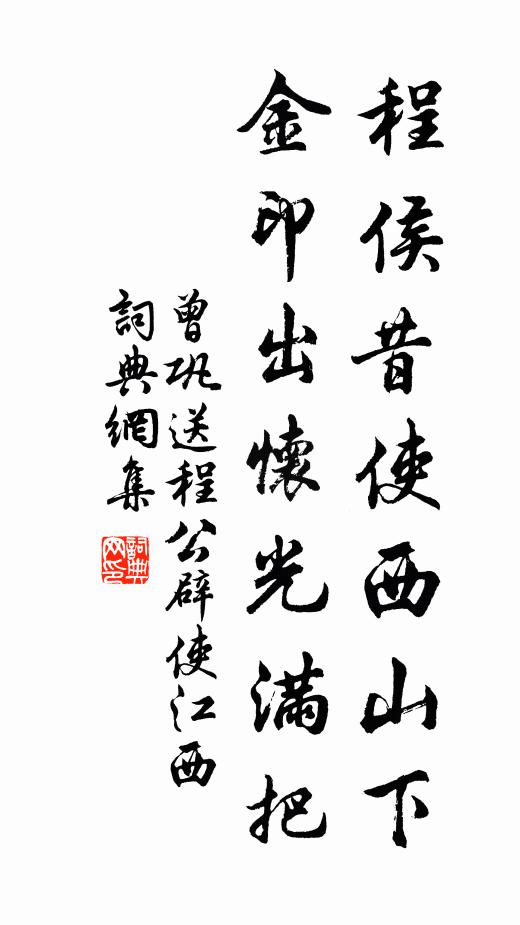 程侯昔使西山下
金印出懷光滿把
曾巩送程公辟使江西
詞典網集
詞典網印